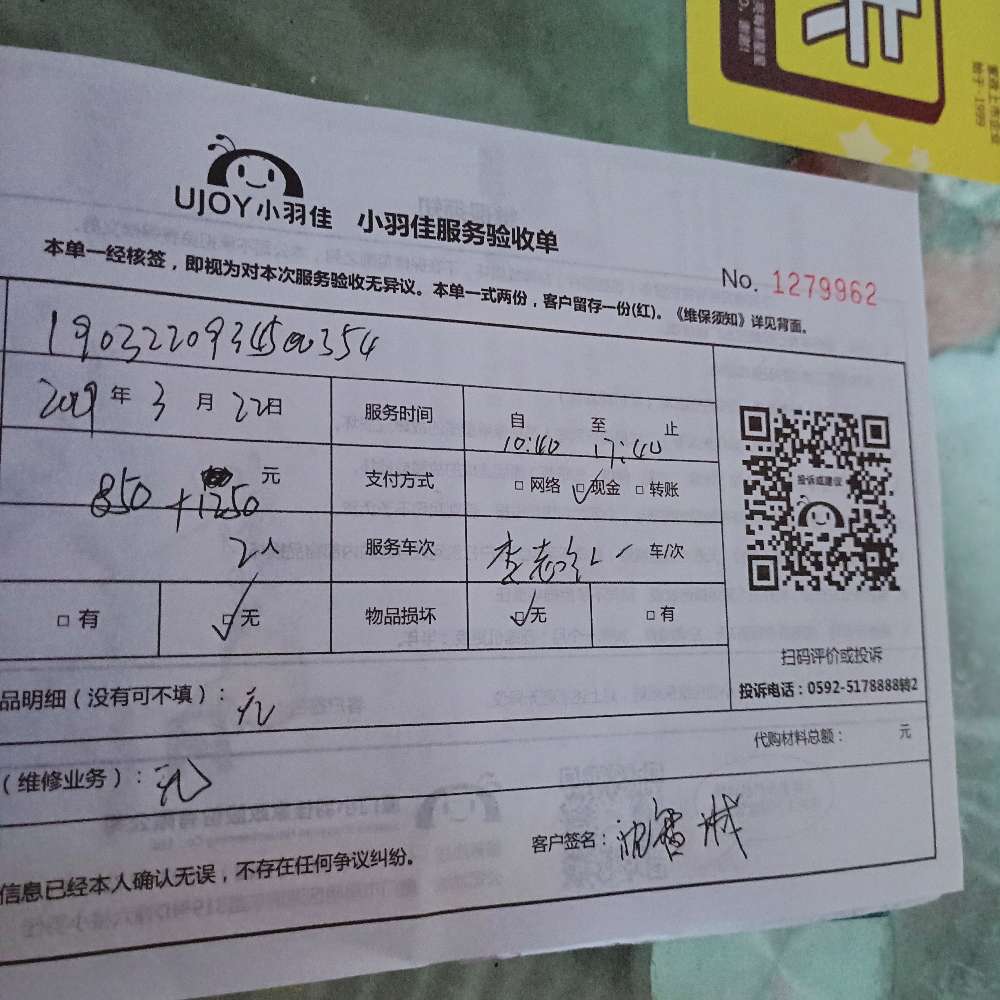 UJOY小羽佳 小羽佳服务验收单
No. 1279962
本单一经核签，即视为对本次服务验收无异议。本单一式两份，客户留存一份(红)。《维保须知》详见背面。
2019年 3月 22日 服务时间 自 10:40 至 17:40 止
850+1250 元 支付方式 □网络 ☑现金 □转账
投诉或建议
2人 服务车次 李志 车/次
□有 ☑无 物品损坏 ☑无 □有
扫码评价或投诉
投诉电话：0592-5178888转2
品明细（没有可不填）：无
代购材料总额： 元
（维修业务）：无
客户签名：
信息已经本人确认无误，不存在任何争议纠纷。